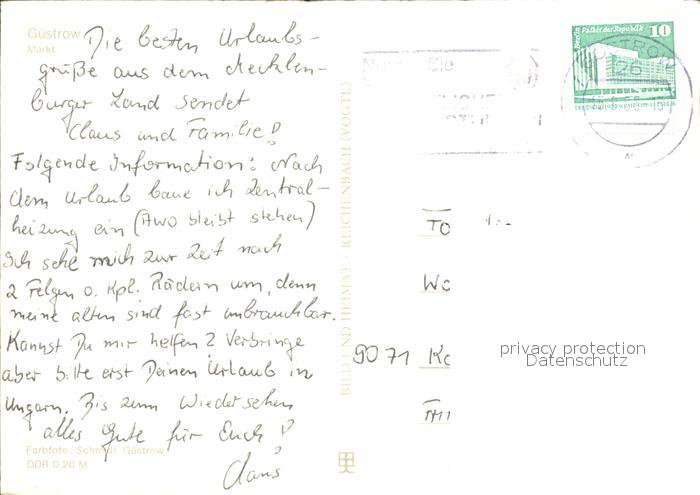 Güstrow
Markt
Die besten Urlaubs-
grüße aus dem Mecklen-
burger Land sendet
Claus und Familie!
Folgende Information: Nach
dem Urlaub baue ich Zentral-
heizung ein (AWO bleibt stehen)
Ich sehe mich zur Zeit nach
2 Felgen o. kpl. Rädern um, denn
meine alten sind fast unbrauchbar.
Kannst Du mir helfen? Verbringe
aber bitte erst Deinen Urlaub in
Ungarn. Bis zum Wiedersehen
alles Gute für Euch!
Claus
Farbfoto: Schmidt, Güstrow
DDR 0,20 M
BILD UND HEIMAT · REICHENBACH (VOGTL)
Berlin Palast der Republik 10
9071
privacy protection
Datenschutz